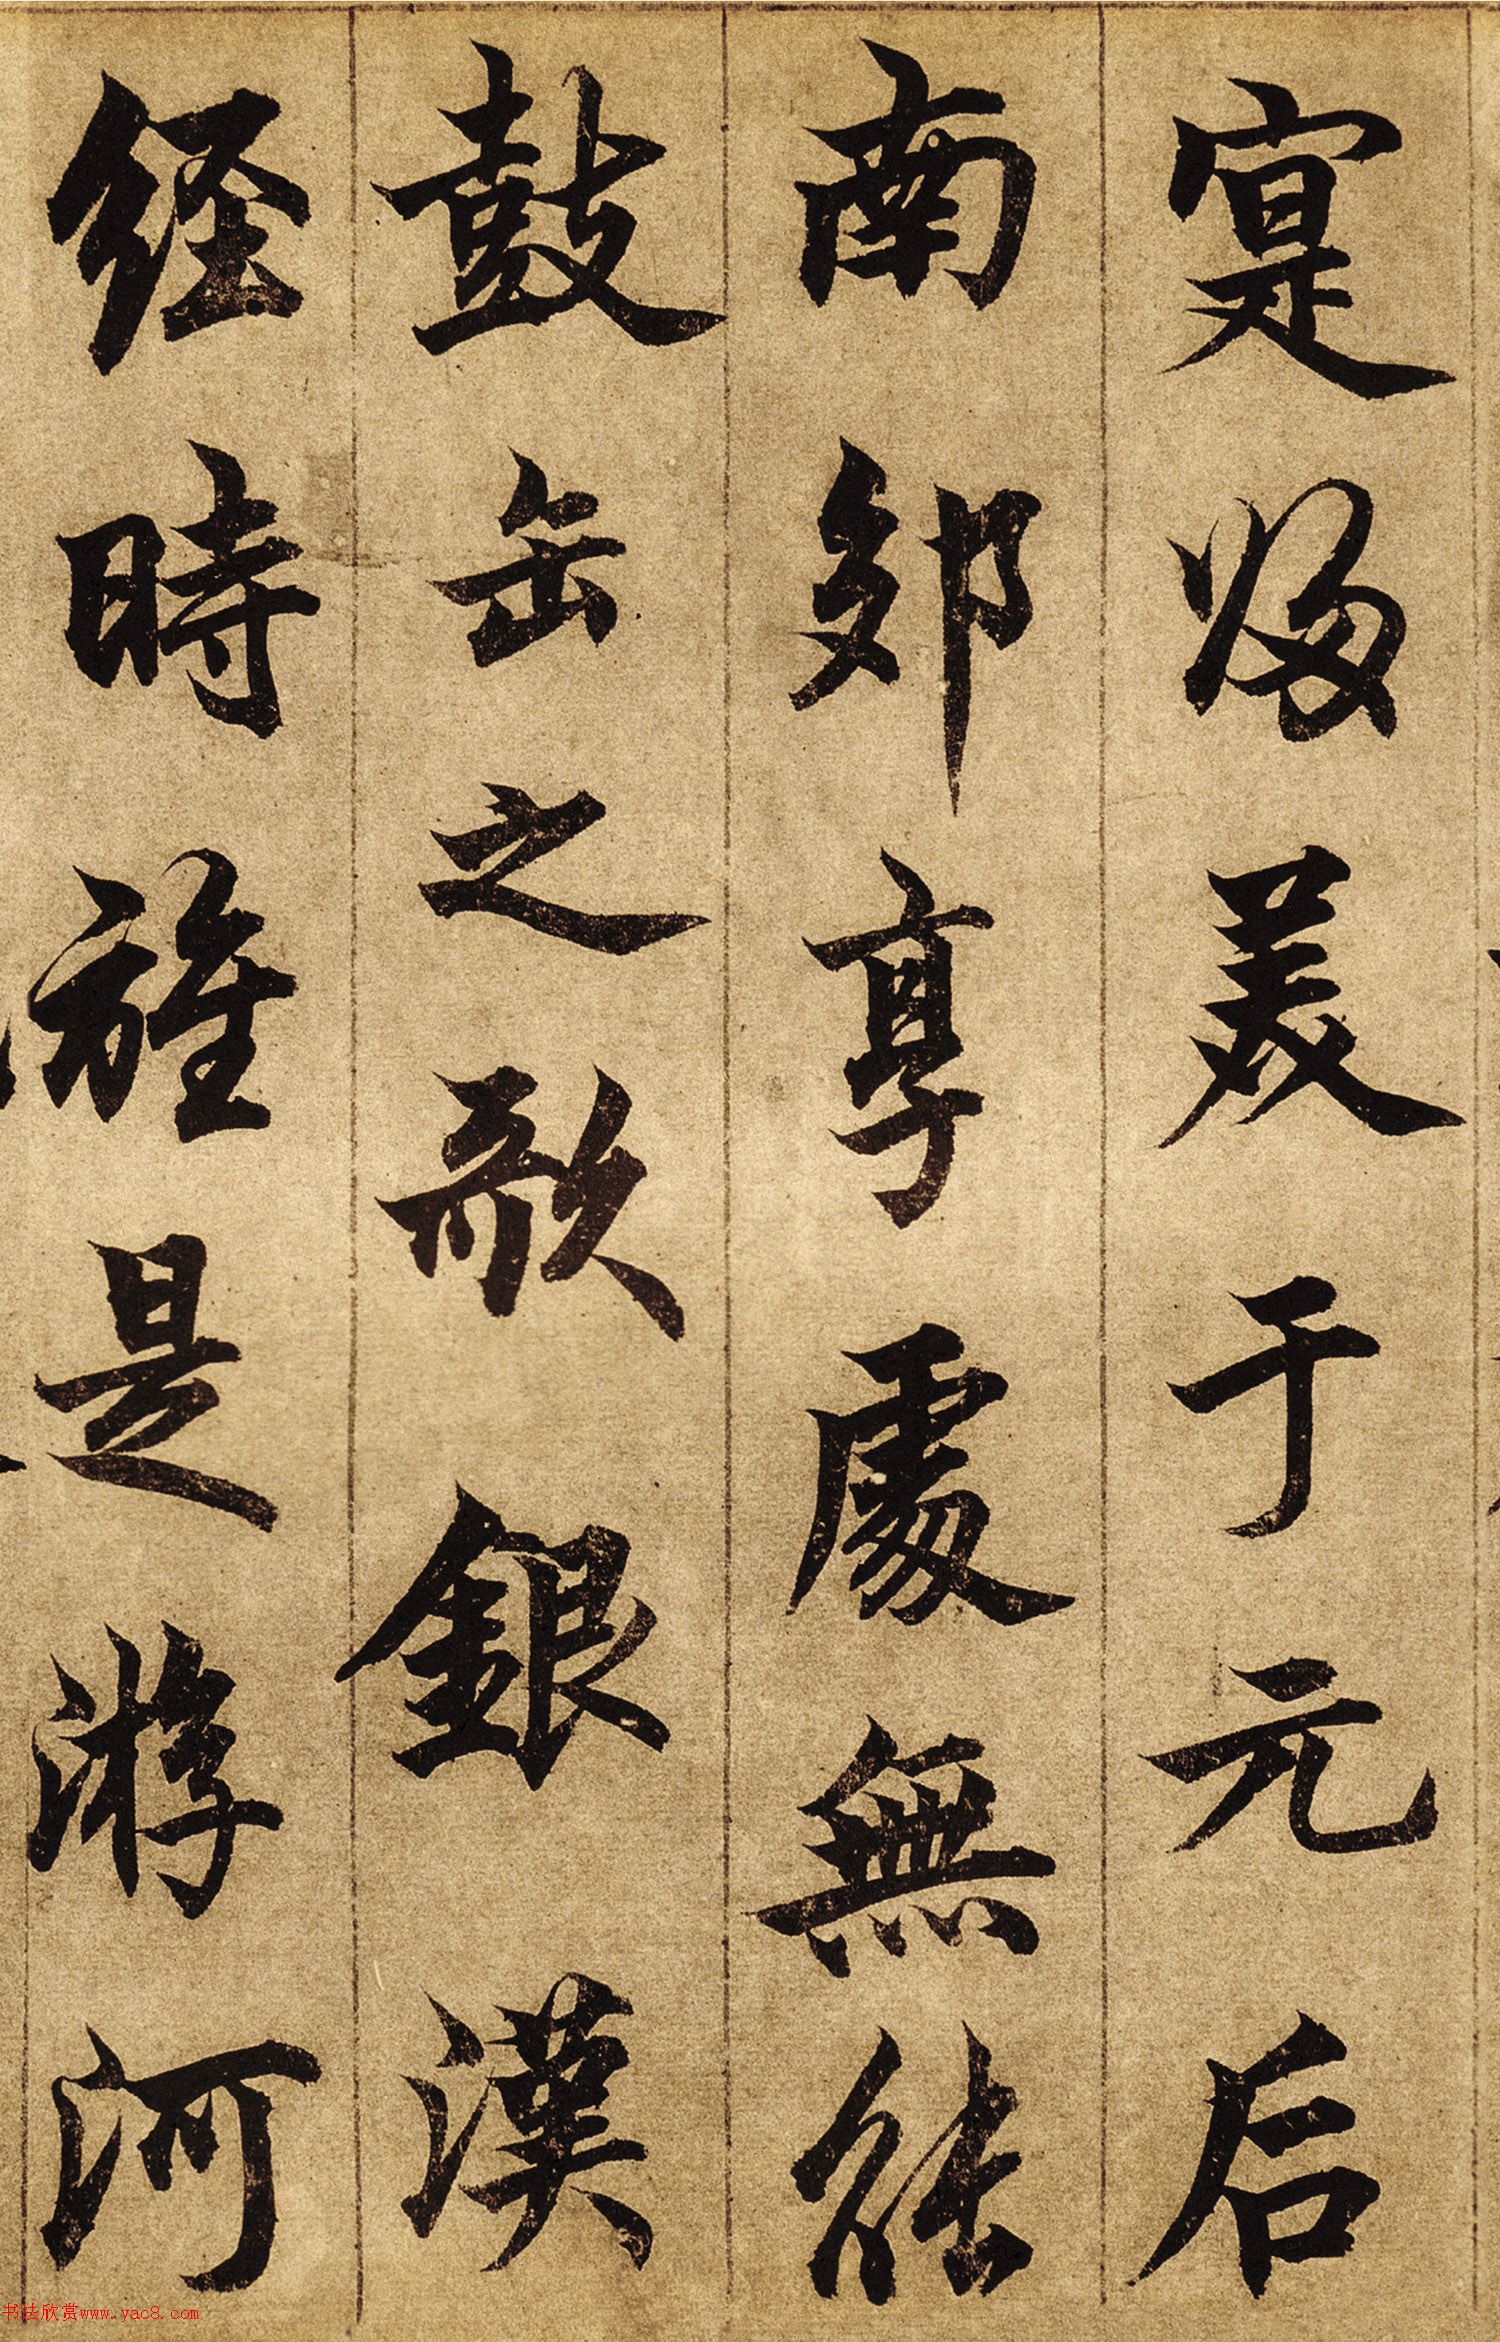 寔歸美于元后
南郊享處無能
鼓缶之歌銀漢
經時是游河
书法欣赏www.yac8.com